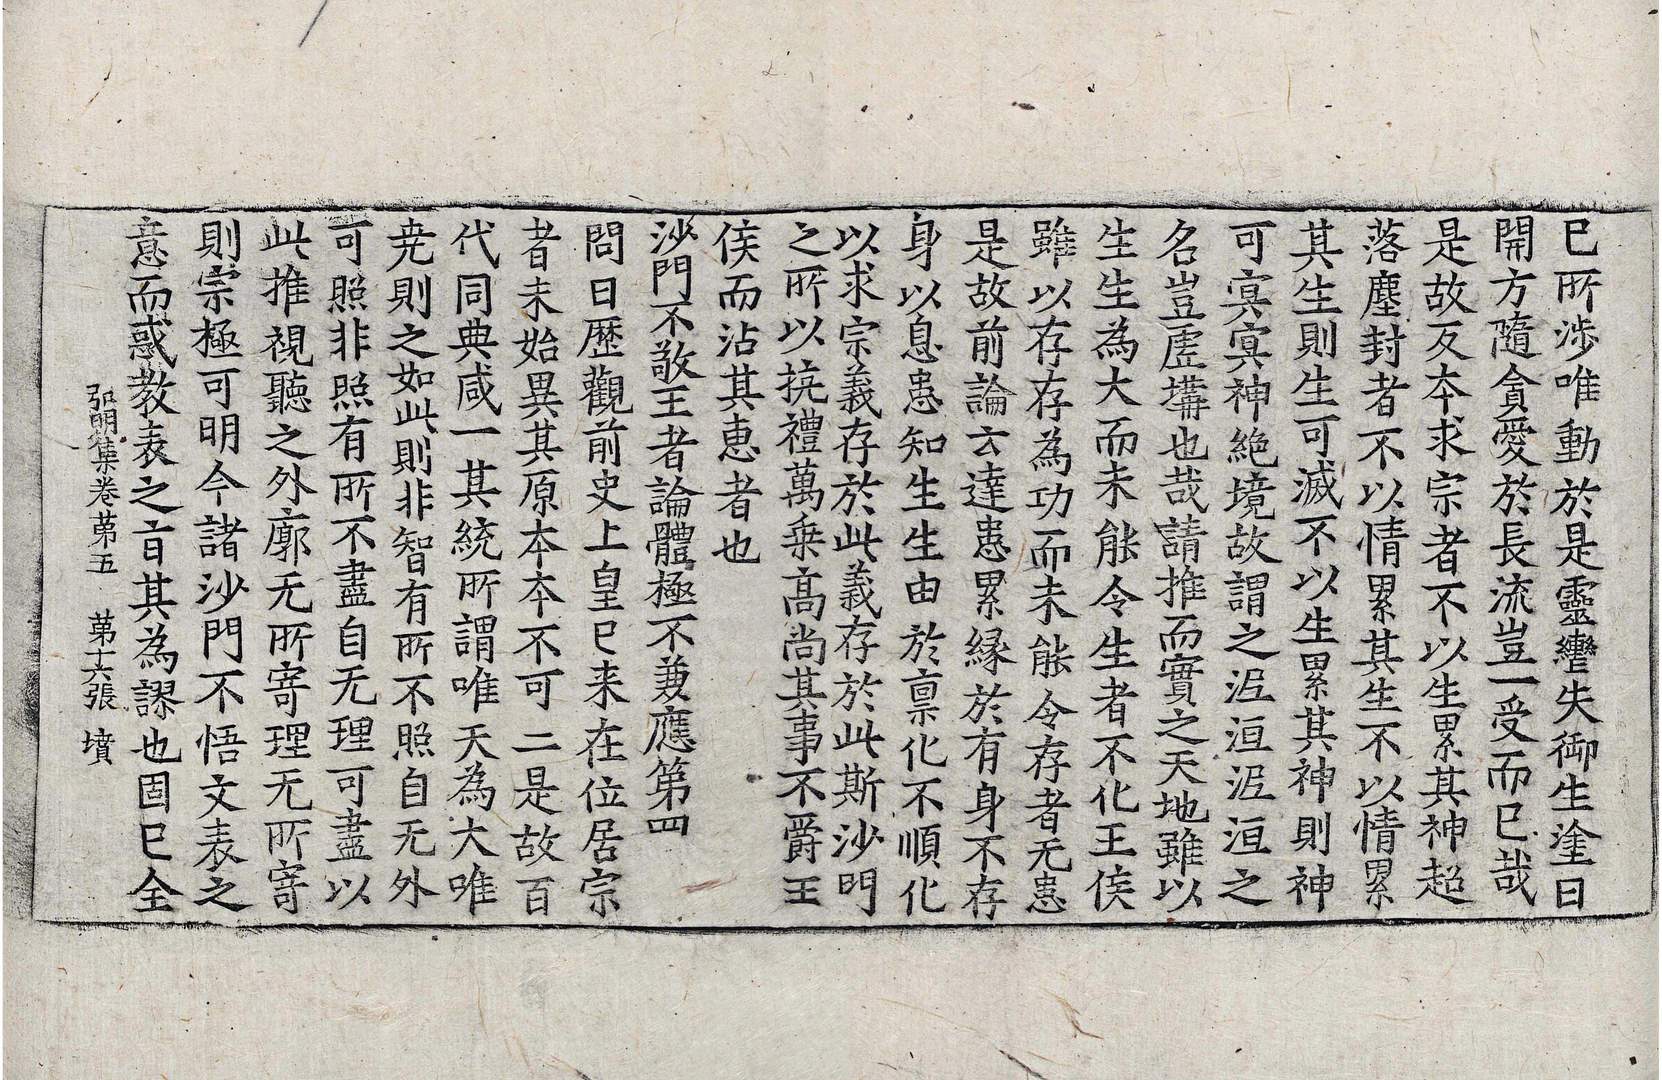 已所涉唯動於是靈轡失御生塗日
開方隨貪愛於長流豈一受而已哉
是故反本求宗者不以生累其神超
落塵封者不以情累其生不以情累
其生則生可滅不以生累其神則神
可冥冥神絶境故謂之泥洹泥洹之
名豈虛構也哉請推而實之天地雖以
生生為大而未能令生者不化王侯
雖以存存為功而未能令存者无患
是故前論云達患累緣於有身不存
身以息患知生生由於禀化不順化
以求宗義存於此義存於此斯沙門
之所以抗禮萬乗高尚其事不爵王
侯而沾其惠者也
沙門不敬王者論體極不兼應第四
問曰歷觀前史上皇已来在位居宗
者未始異其原本本不可二是故百
代同典咸一其統所謂唯天為大唯
尭則之如此則非智有所不照自无外
可照非照有所不盡自无理可盡以
此推視聽之外廓无所寄理无所寄
則宗極可明今諸沙門不悟文表之
意而惑教表之旨其為謬也固已全
弘明集卷第五 第十六張 墳